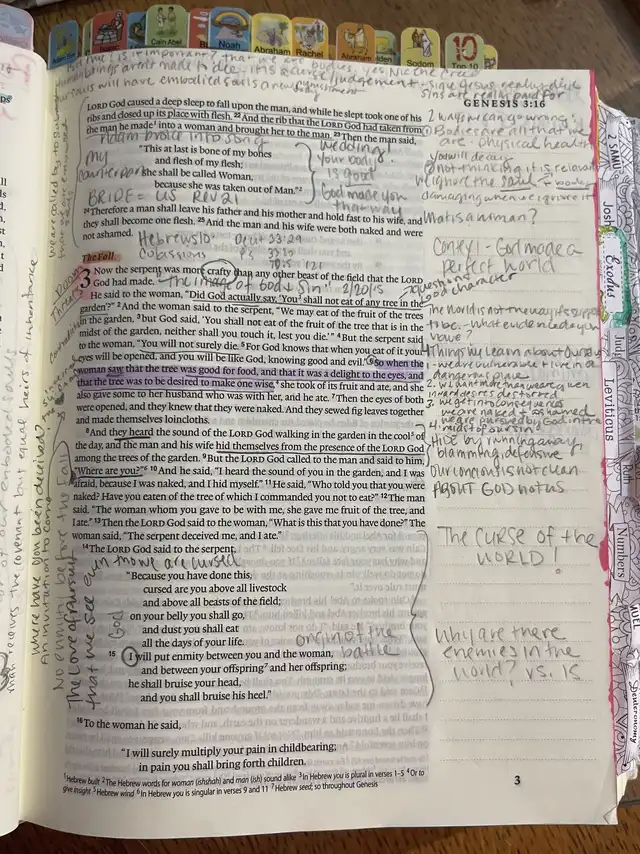 Cain Abel
Noah
Abraham
Rachel
Sodom
10
Top 10
GENESIS 3:16
LORD God caused a deep sleep to fall upon the man, and while he slept took one of his
ribs and closed up its place with flesh. 22 And the rib that the LORD God had taken from
the man he made1 into a woman and brought her to the man. 23 Then the man said,
Adam broke into song
"This at last is bone of my bones
and flesh of my flesh;
she shall be called Woman,
because she was taken out of Man."2
my
counterpart
wedding!
your body
is good
God made you
that way
BRIDE = US Rev 21
24 Therefore a man shall leave his father and his mother and hold fast to his wife, and
they shall become one flesh. 25 And the man and his wife were both naked and were
not ashamed.
The Fall
3 Now the serpent was more crafty than any other beast of the field that the LORD
God had made.
The image of God & Sin" 2/20/15
He said to the woman, "Did God actually say, 'You3 shall not eat of any tree in the
garden'?" 2 And the woman said to the serpent, "We may eat of the fruit of the trees
in the garden, 3 but God said, 'You shall not eat of the fruit of the tree that is in the
midst of the garden, neither shall you touch it, lest you die.'" 4 But the serpent said
to the woman, "You will not surely die. 5 For God knows that when you eat of it your
eyes will be opened, and you will be like God, knowing good and evil." 6 So when the
woman saw that the tree was good for food, and that it was a delight to the eyes, and
that the tree was to be desired to make one wise,4 she took of its fruit and ate, and she
also gave some to her husband who was with her, and he ate. 7 Then the eyes of both
were opened, and they knew that they were naked. And they sewed fig leaves together
and made themselves loincloths.
8 And they heard the sound of the LORD God walking in the garden in the cool5 of
the day, and the man and his wife hid themselves from the presence of the LORD God
among the trees of the garden. 9 But the LORD God called to the man and said to him,
"Where are you?"6 10 And he said, "I heard the sound of you in the garden, and I was
afraid, because I was naked, and I hid myself." 11 He said, "Who told you that you were
naked? Have you eaten of the tree of which I commanded you not to eat?" 12 The man
said, "The woman whom you gave to be with me, she gave me fruit of the tree, and
I ate." 13 Then the LORD God said to the woman, "What is this that you have done?" The
woman said, "The serpent deceived me, and I ate."
14 The LORD God said to the serpent,
even tho we are cursed
"Because you have done this,
cursed are you above all livestock
and above all beasts of the field;
on your belly you shall go,
and dust you shall eat
all the days of your life.
15 I will put enmity between you and the woman,
and between your offspring7 and her offspring;
he shall bruise your head,
and you shall bruise his heel."
God
origin of the
battle
16 To the woman he said,
"I will surely multiply your pain in childbearing;
in pain you shall bring forth children.
1 Hebrew built 2 The Hebrew words for woman (ishshah) and man (ish) sound alike 3 In Hebrew you is plural in verses 1–5 4 Or to
give insight 5 Hebrew wind 6 In Hebrew you is singular in verses 9 and 11 7 Hebrew seed; so throughout Genesis
3
2 ways we can go wrong:
What is a woman?
Context - God made a
perfect world
HIDE by running away
blaming, defensive
our conscious is not clean
ABOUT GOD not us
The CURSE OF the
WORLD!
Why are there
enemies in the
world? vs. 15
Where have you been deceived?
An invitation to come
No enmity before the fall
The Love of pursuit
that we see
2 SAMU
Josh
Exodus
Judg
Leviticus
Ruth
Numbers
Deuteronomy